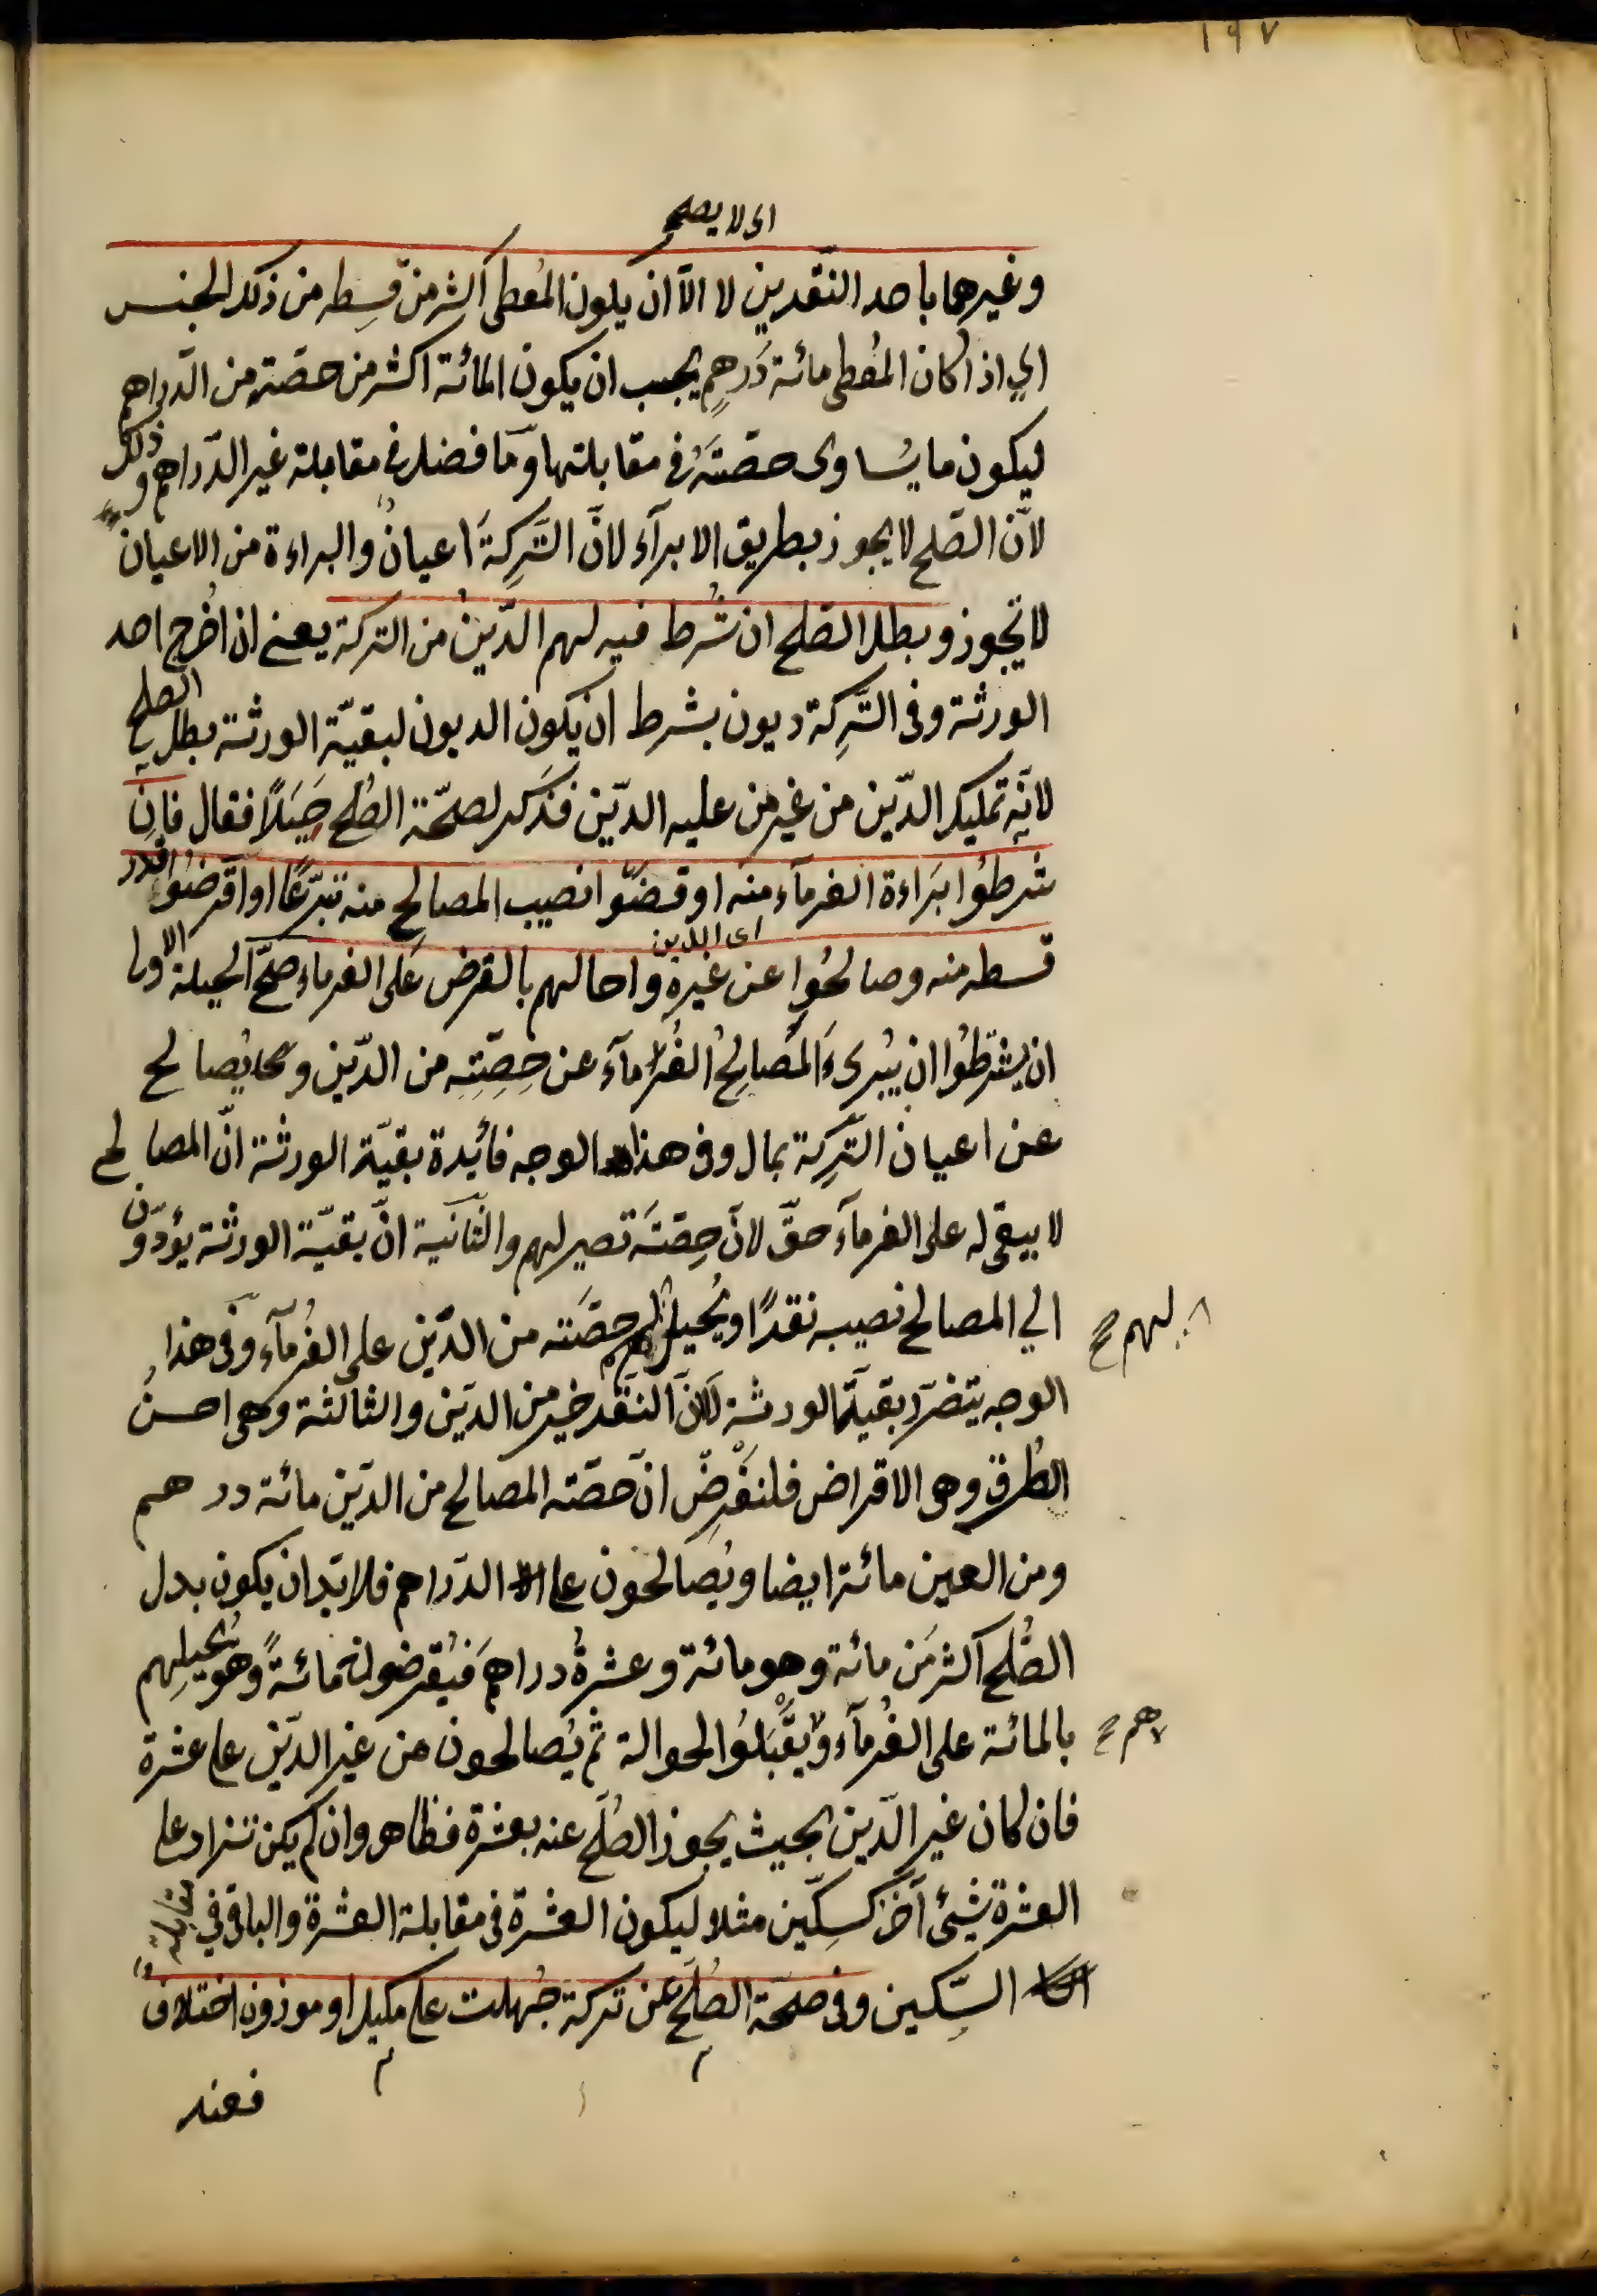 ١٩٧
اى لا يصلح
وغيرهما باحد النّقدين لا الّا ان يكون المُعطى اكثر من قِسطِه من ذلك الجنس
اي اذا كان المُعطى مائة دَرهِم يجب ان يكون المائة اكثر من حصّته من الدّراهم
ليكون ما يُساوى حصّتَهُ فى مقابلتها وَمَا فضل فى مقابلة غير الدّراهم و ذلك
لانّ الصّلح لا يجوز بطريق الابرآء لانّ التَّرِكَةَ اعيانٌ والبراءة من الاعيان
لا تجوز وبطل الصّلح ان شُرط فيه لهم الدّينُ من التركة يعنى ان اُخرج احد
الورثة وفى التَّرِكة ديون بشرط ان يكون الديون لبقيّة الورثة بطل الصلح
لانّه تمليك الدّين من غير من عليه الدّين فذَكر لصحّة الصُلح حِيَلًا فقال فان
شرطُوا بَراءة الغرمآء منه او قضَوا نصيب المصالح منه تبرّعًا او اقرضُوا قدر
قسطه منه وصالحُوا عن غيره واحالهم بالقرض عَلى الغرماء صحّ الحيلة الاولى
اى الدين
ان يشترطُوا ان يُبرىءَ المُصالِحُ الغُرمآء عن حِصّتِه من الدّين و يُصالح
عن اعيان التّرِكة بمال وفى هذا الوجه فائدة بقيّة الورثة انّ المصالح
لا يبقى له على الغرمآء حقّ لا انّ حِصّتَه تصير لهم والثّانية انّ بقيّة الورثة يؤدّون
الي المصالح نصيبه نقدًا ويُحيل لهم حصّته من الدّين على الغُرمآء وفى هذا
لهم صح
الوجه يتضرّر بقيّة الورثة لانّ النّقد خير من الدّين والثالثة وهى احسنُ
الطُرق وهو الاقراض فلنَفْرِضْ انّ حصّته المصالح من الدّين مائة درهم
ومن العين مائة ايضا ويُصالحون على الدّراهم فلا بدّ ان يكون بدل
الصُّلح اكثر من مائة وهو مائة وعشرةُ دراهمَ فيُقرضونه مائةً وهو يُحيلهم
بالمائة على الغُرمآء ويَقْبَلُوا الحوالة ثمّ يُصالحون عن غير الدّين على عشرة
هم صح
فان كان غير الدّين بحيث يجوز الصُلح عنه بعشرة فظاهر وان لم يكن تُزاد على
العشرة شيئ آخر كسِكّين مثلا ليكون العشرة فى مقابلة العشرة والباقى في مقابلة
السِّكين وفى صحّة الصُلح عن تركة جُهلت على مكيل او موزون اختلافٌ
فعند